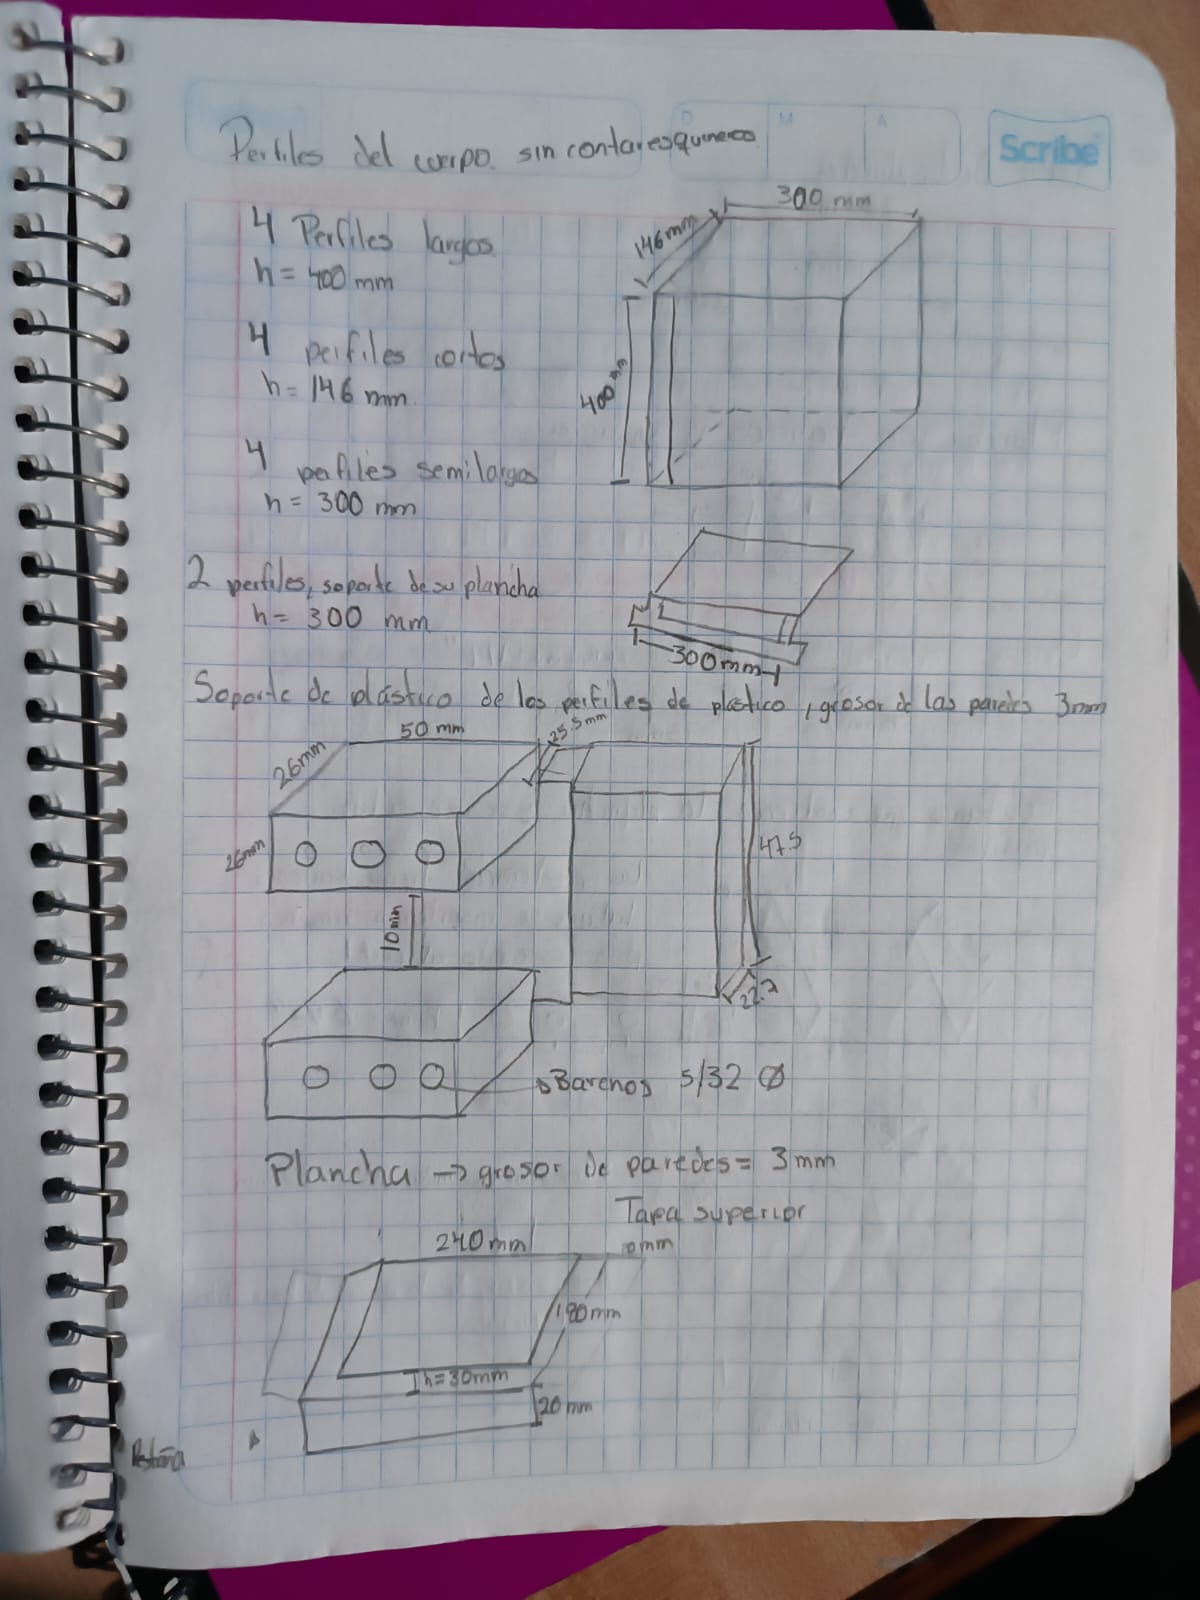 D M A
Scribe
Perfiles del cuerpo sin contar esquineros
300 mm
146 mm
4 Perfiles largos
h = 400 mm
4 perfiles cortos
h = 146 mm
400 mm
4 perfiles semilargos
h = 300 mm
2 perfiles, soporte de su plancha
h = 300 mm
300mm
Soporte de plástico de los perfiles de plastico, grosor de las paredes 3mm
50 mm
25.5 mm
26mm
26mm
47.5
10mm
22.2
Barenos 5/32 Ø
Plancha → grosor de paredes = 3mm
Tapa superior
240mm
0mm
180mm
h=30mm
20mm
Pestaña